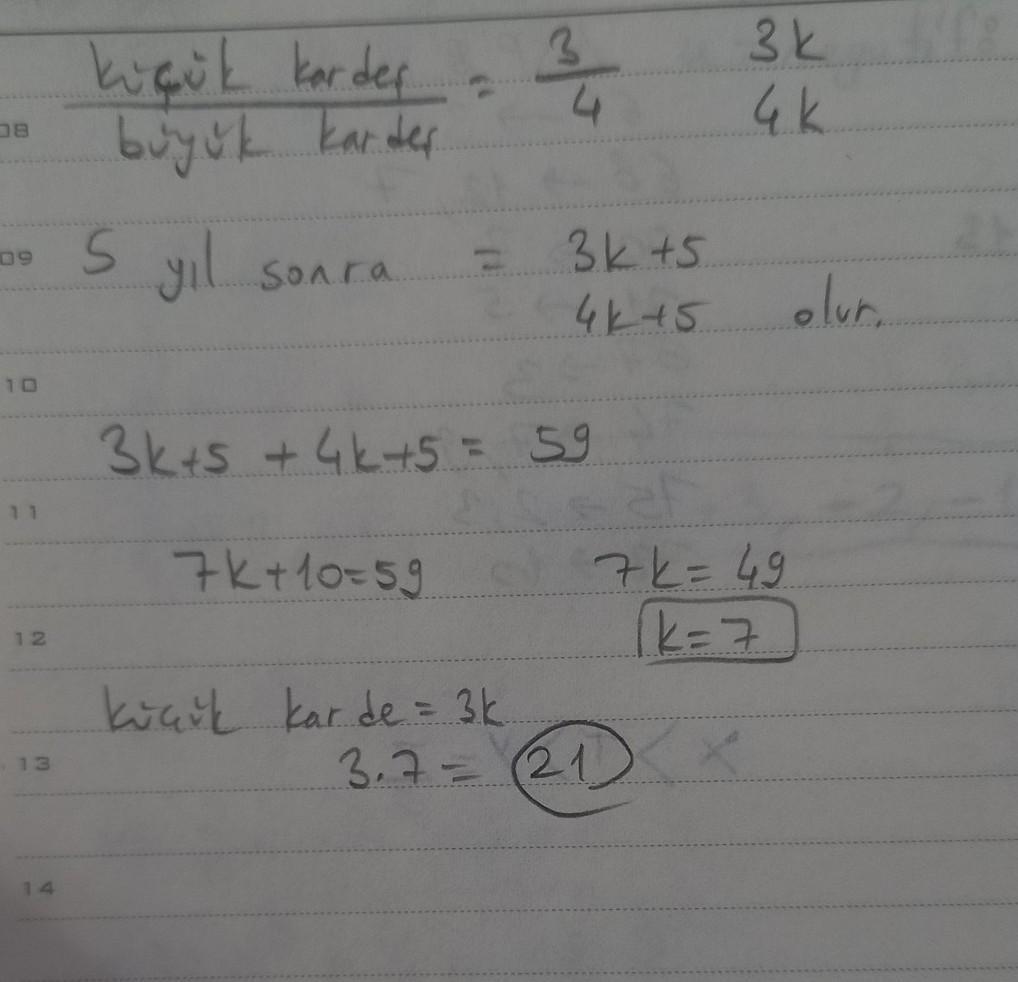 küçük kardeş / büyük kardeş = 3/4 3k
4k
08
09 5 yıl sonra = 3k+5
4k+5 olur.
10
3k+5 + 4k+5 = 59
11
7k+10=59 7k=49
12 k=7
küçük karde = 3k
13 3.7 = 21
14